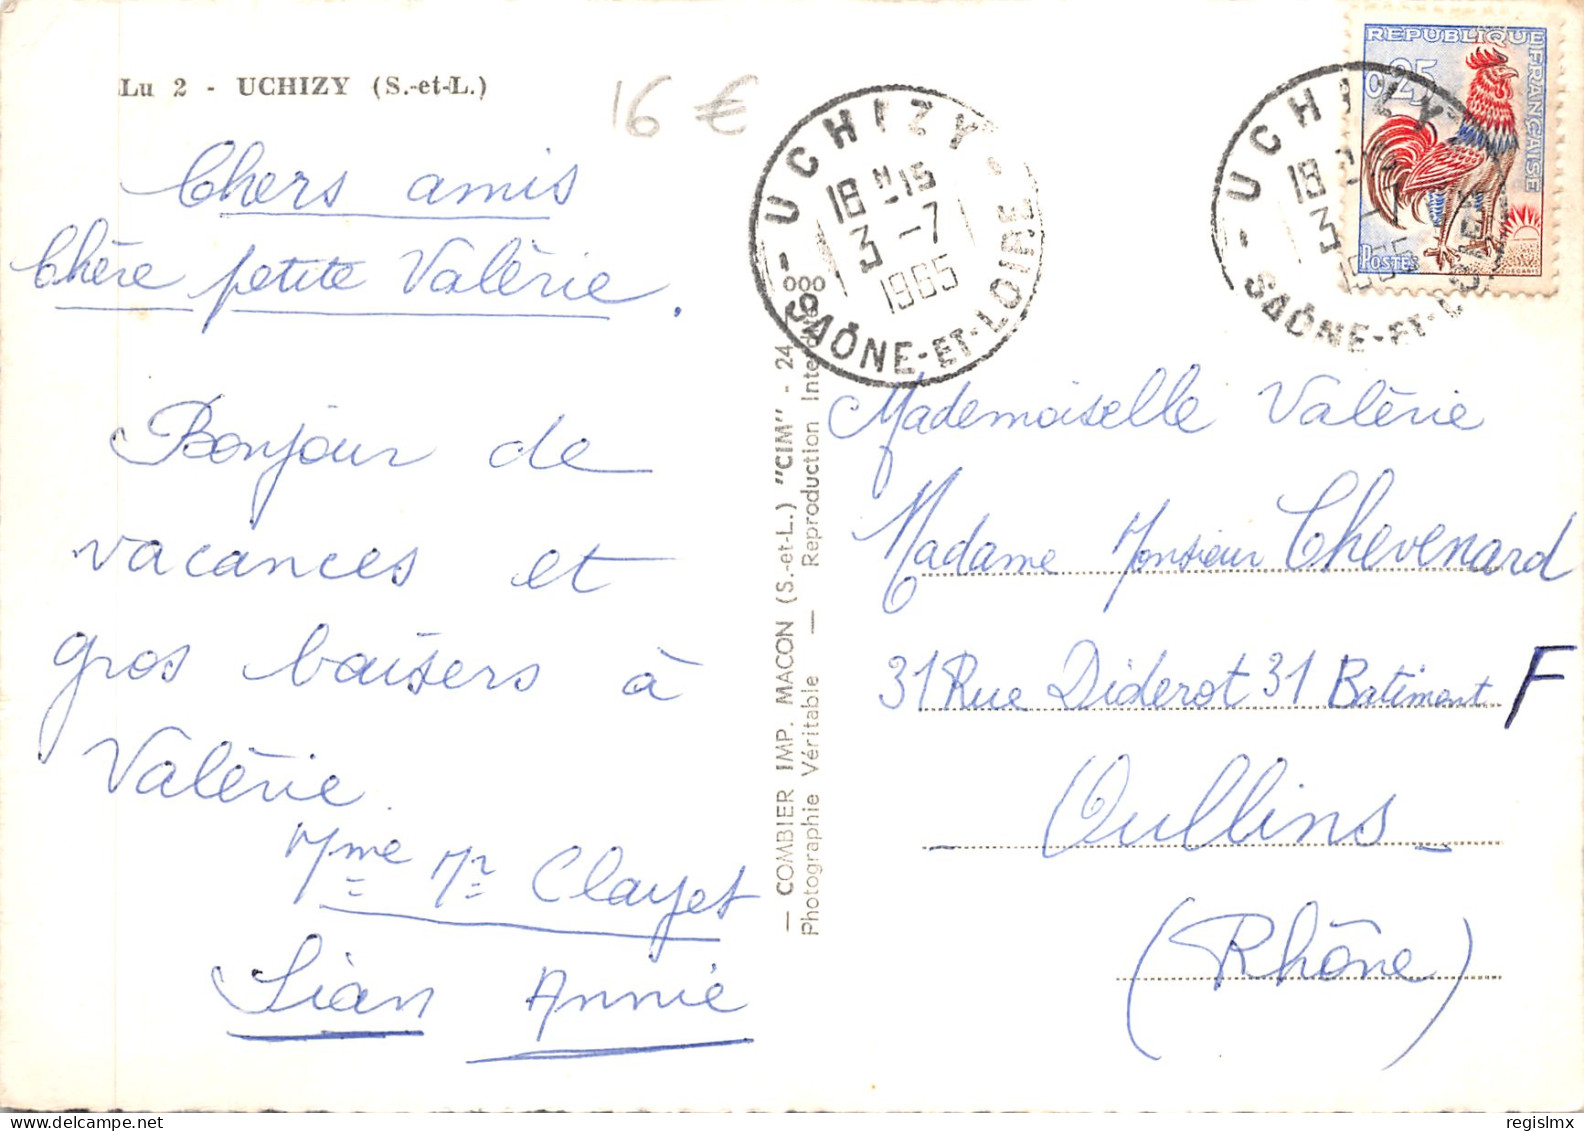 Lu 2 - UCHIZY (S.-et-L.)
16 €
Chers amis
Chère petite Valérie.
Bonjour de
vacances et
gros baisers à
Valérie.
Mme Mr Clayet
Lian Annie
— COMBIER IMP. MACON (S.-et-L.) "CIM" - 24
Photographie Véritable — Reproduction Inter
UCHIZY
18 H 15
3 - 7
1965
SAÔNE-ET-LOIRE
REPUBLIQUE FRANÇAISE
0,25
POSTES
DECARIS
UCHIZY
18
3 - 7
1965
SAÔNE-ET-LOIRE
Mademoiselle Valérie
Madame Monsieur Chevenard
31 Rue Diderot 31 Batiment F
— Oullins —
(Rhône)
regislmx